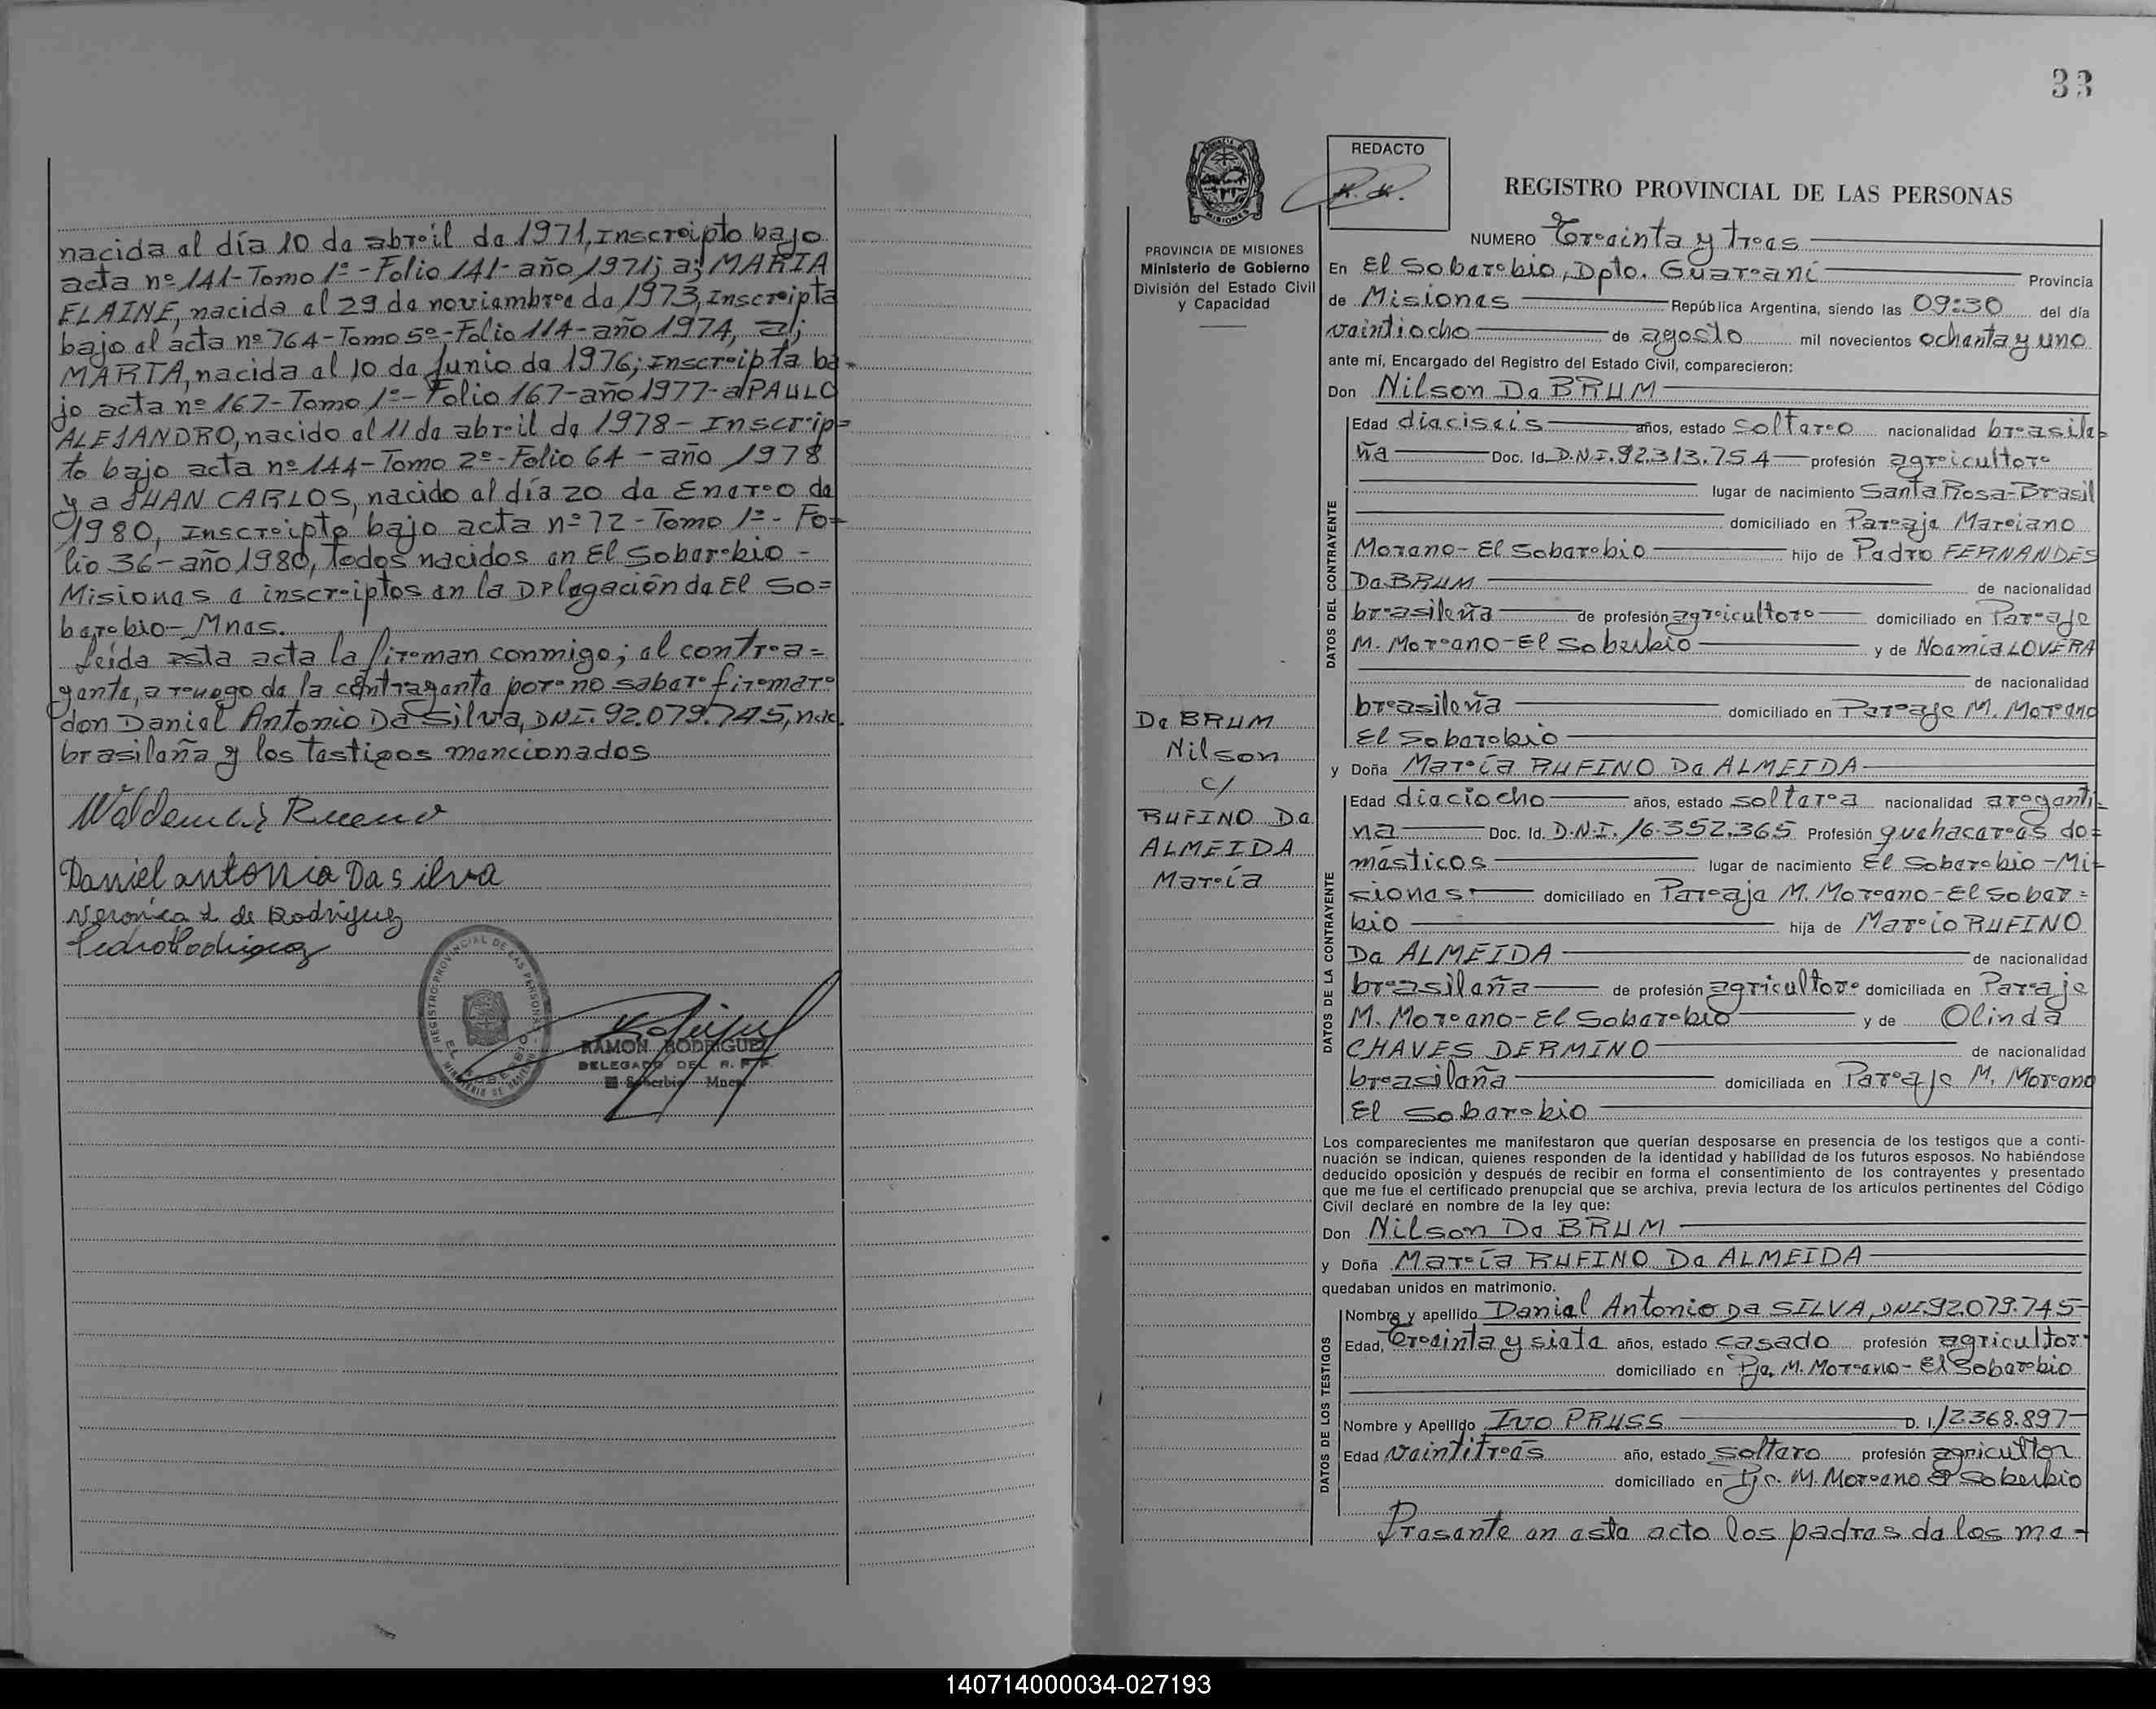 nacida el día 10 de abril de 1971, Inscripto bajo
acta nº 141-Tomo 1º-Folio 141-año 1971; a; MARIA
ELAINE, nacida el 29 de noviembre de 1973, Inscripta
bajo el acta nº 764-Tomo 5º-Folio 114-año 1974, a;
MARTA, nacida el 10 de Junio de 1976; Inscripta ba-
jo acta nº 167-Tomo 1º-Folio 167-año 1977-a PAULO
ALEJANDRO, nacido el 11 de abril de 1978-Inscrip=
to bajo acta nº 144-Tomo 2º-Folio 64-año 1978
y a JUAN CARLOS, nacido el día 20 de Enero de
1980, Inscripto bajo acta nº 72-Tomo 1º-Fo=
lio 36-año 1980, todos nacidos en El Soberbio-
Misiones e inscriptos en la Delegación de El So=
berbio-Mnes.
Leída esta acta la firman conmigo; el contra=
yente, a ruego de la contrayente por no saber firmar
don Daniel Antonio Da Silva, DNI. 92.079.745, nac.
brasileña y los testigos mencionados
Daniel antonio Da silva
Veronica L de Rodriguez
Pedro Rodriguez
REGISTRO PROVINCIAL DE LAS PERSONAS
EL SOBERBIO
MINISTERIO DE GOBIERNO
RAMON RODRIGUEZ
DELEGADO DEL R. P. P.
El Soberbio Mnes.
33
PROVINCIA DE MISIONES
Ministerio de Gobierno
División del Estado Civil
y Capacidad
De BRUM
Nilson
c/
RUFINO De
ALMEIDA
María
REDACTO
REGISTRO PROVINCIAL DE LAS PERSONAS
NUMERO Treinta y tres
En El Soberbio, Dpto. Guaraní Provincia
de Misiones República Argentina, siendo las 09:30 del día
veintiocho de agosto mil novecientos ochenta y uno
ante mí, Encargado del Registro del Estado Civil, comparecieron:
Don Nilson De BRUM
DATOS DEL CONTRAYENTE
Edad dieciseis años, estado soltero nacionalidad brasile=
ña Doc. Id. D.N.I. 92.313.754 profesión agricultor
lugar de nacimiento Santa Rosa-Brasil
domiciliado en Paraje Mariano
Moreno-El Soberbio hijo de Pedro FERNANDES
De BRUM de nacionalidad
brasileña de profesión agricultor domiciliado en Paraje
M. Moreno-El Soberbio y de Noemía LOVERA
de nacionalidad
brasileña domiciliado en Paraje M. Moreno
El Soberbio
y Doña María RUFINO De ALMEIDA
DATOS DE LA CONTRAYENTE
Edad dieciocho años, estado soltera nacionalidad argenti=
na Doc. Id. D.N.I. 16.352.365 Profesión quehaceres do=
mésticos lugar de nacimiento El Soberbio-Mi=
siones domiciliado en Paraje M. Moreno-El Sober=
bio hija de Mario RUFINO
De ALMEIDA de nacionalidad
brasileña de profesión agricultor domiciliada en Paraje
M. Moreno-El Soberbio y de Olinda
CHAVES DERMINO de nacionalidad
brasileña domiciliada en Paraje M. Moreno
El Soberbio
Los comparecientes me manifestaron que querían desposarse en presencia de los testigos que a conti-
nuación se indican, quienes responden de la identidad y habilidad de los futuros esposos. No habiéndose
deducido oposición y después de recibir en forma el consentimiento de los contrayentes y presentado
que me fue el certificado prenupcial que se archiva, previa lectura de los artículos pertinentes del Código
Civil declaré en nombre de la ley que:
Don Nilson De BRUM
y Doña María RUFINO De ALMEIDA
quedaban unidos en matrimonio.
DATOS DE LOS TESTIGOS
Nombre y apellido Daniel Antonio Da SILVA, DNI. 92.079.745-
Edad, treinta y siete años, estado casado profesión agricultor
domiciliado en Pje. M. Moreno-El Soberbio
Nombre y Apellido Ivo PRUSS D. I. 12.368.897-
Edad veintitres año, estado soltero profesión agricultor
domiciliado en Pje. M. Moreno El Soberbio
Presente en este acto los padres de los me-
140714000034-027193